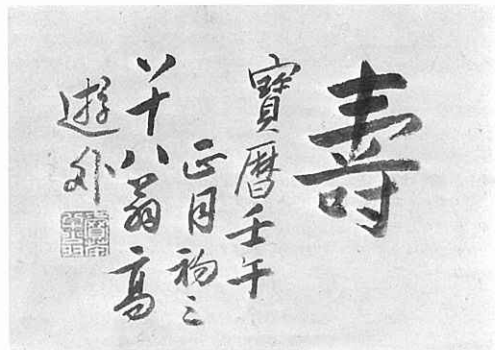 壽
寶暦壬午
正月初三
八十八翁高
遊外